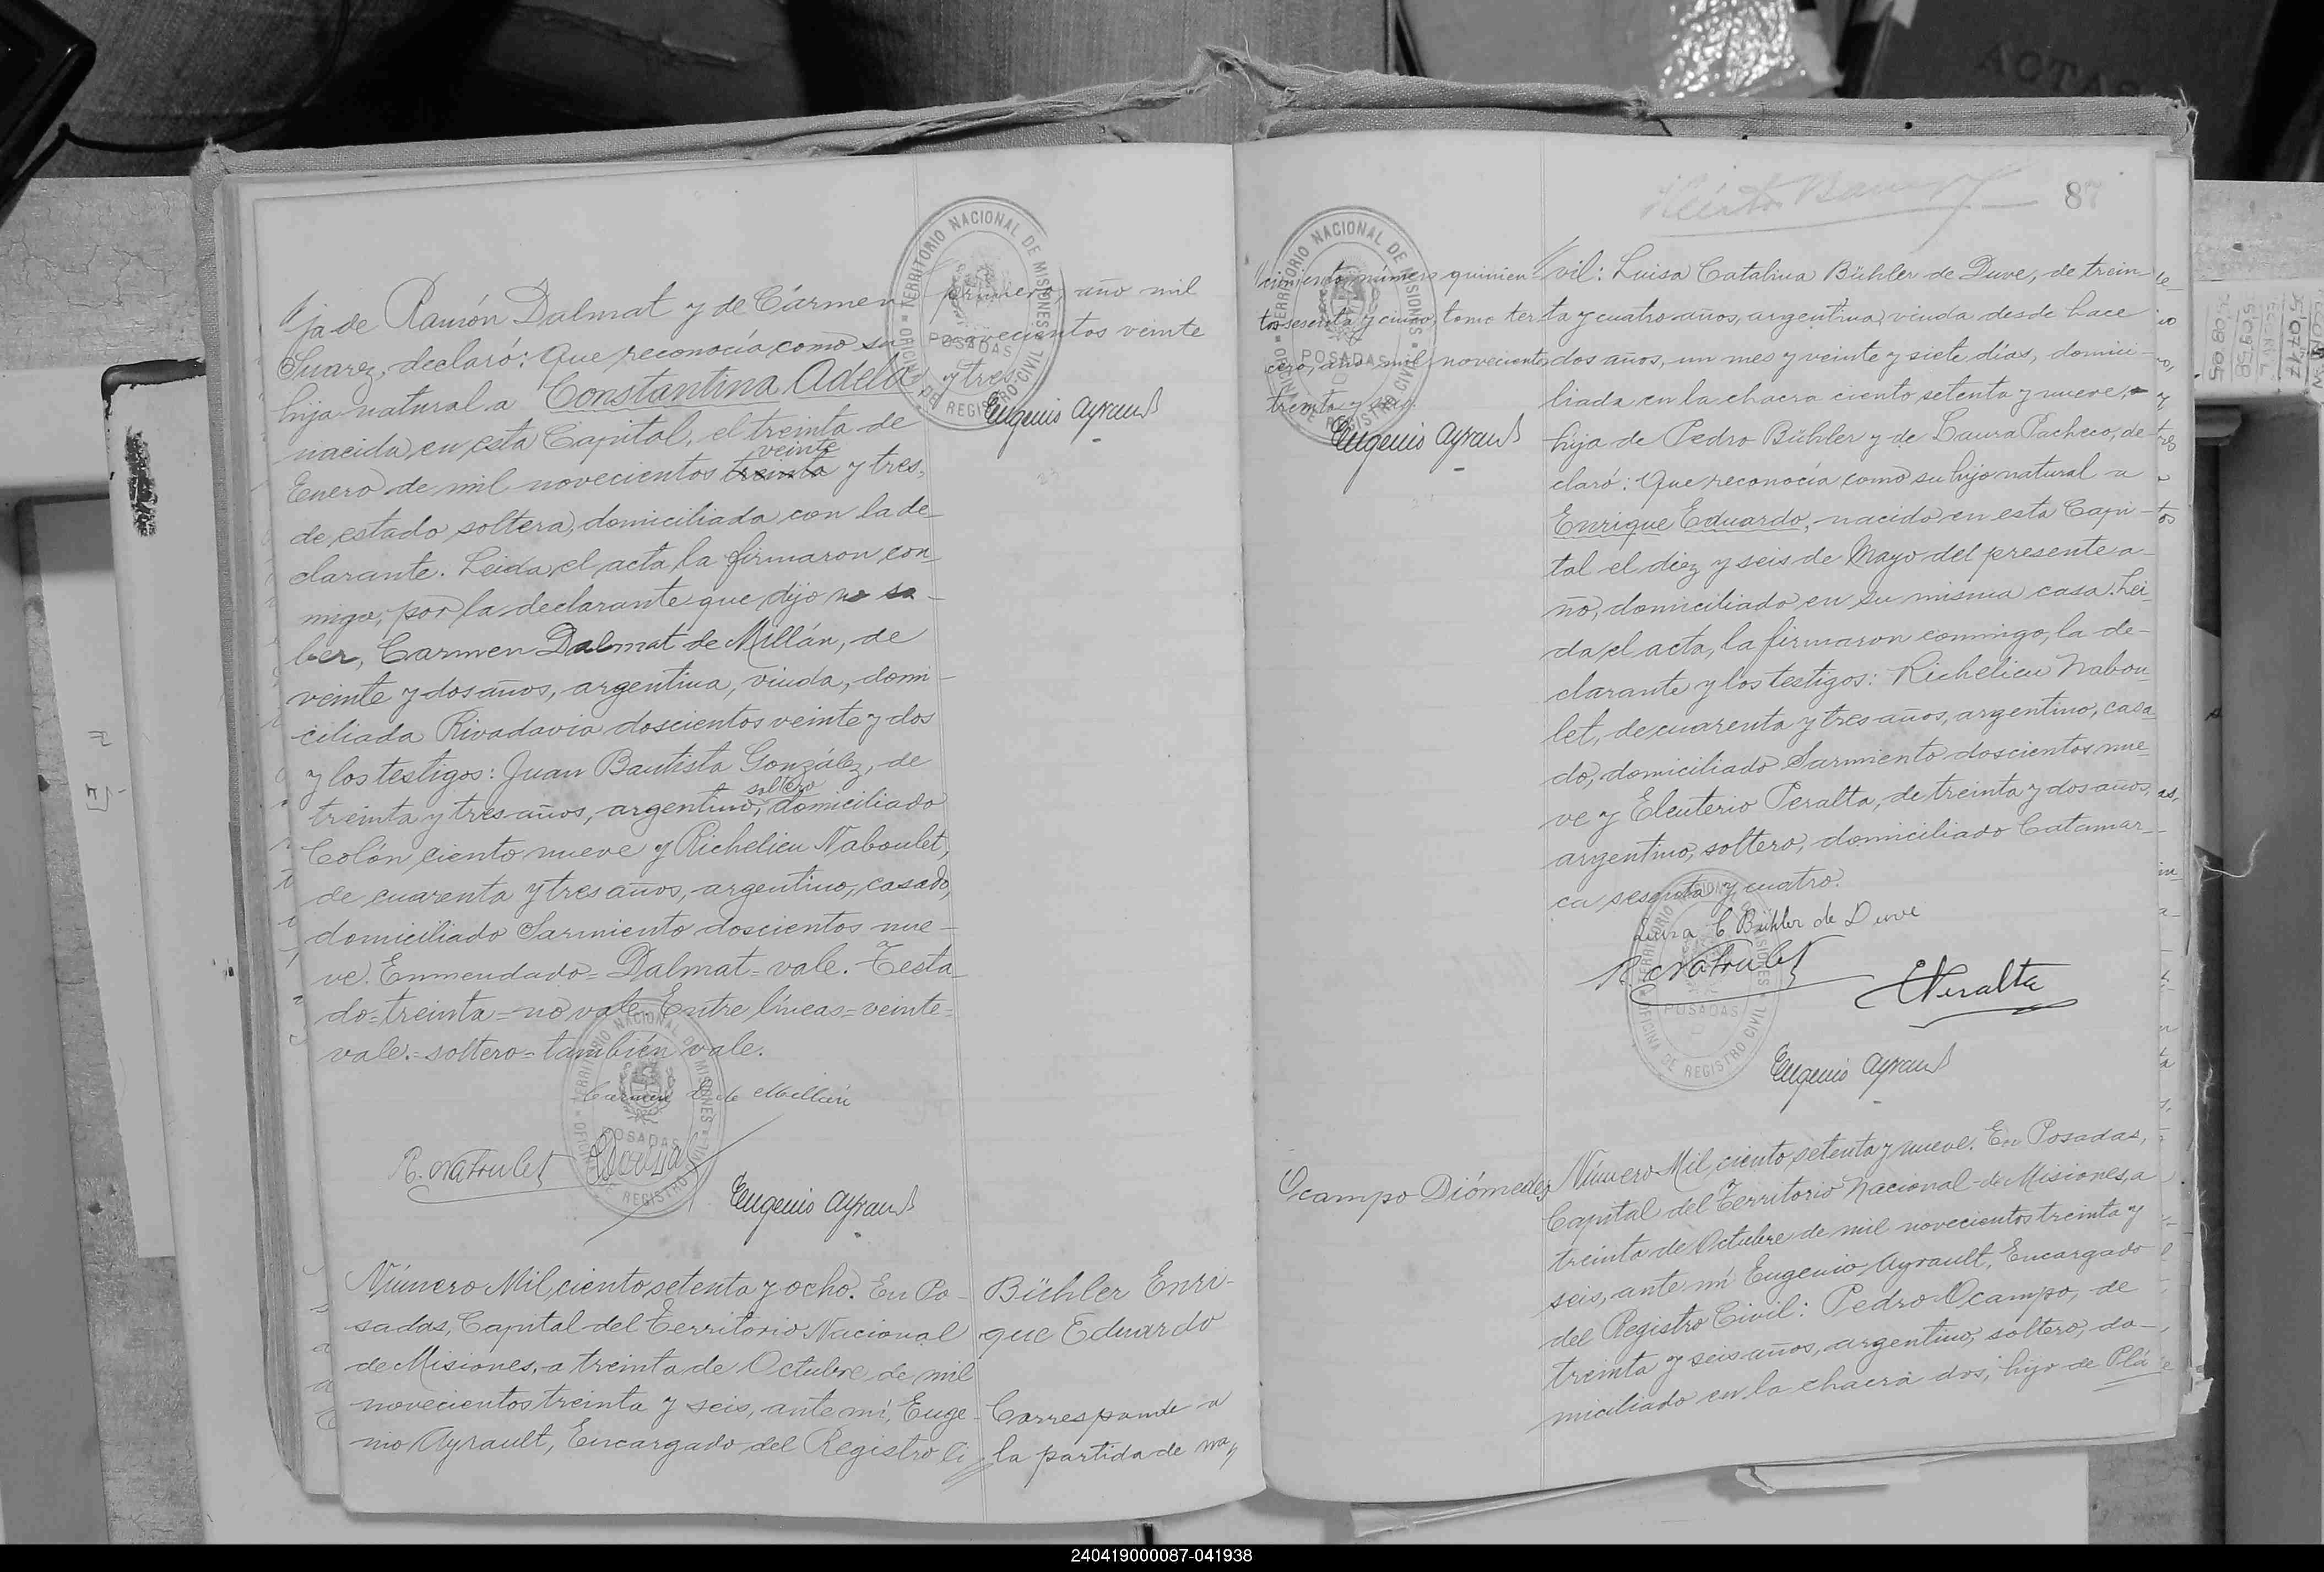 ja de Ramón Dalmat y de Cármen
Suarez, declaró: Que reconocía como su
hija natural a Constantina Adela
nacida en esta Capital, el treinta de
veinte
Enero de mil novecientos treinta y tres,
de estado soltera, domiciliada con la de-
clarante. Leida el acta, la firmaron con-
migo, por la declarante que dijo no sa-
ber, Carmen Dalmat de Millán, de
veinte y dos años, argentina, viuda, domi-
ciliada Rivadavia doscientos veinte y dos
y los testigos: Juan Bautista González, de
soltero
treinta y tres años, argentino, domiciliado
Colón ciento nueve y Richelieu Naboulet,
de cuarenta y tres años, argentino, casado,
domiciliado Sarmiento doscientos nue-
ve. Enmendado = Dalmat = vale. Testa-
do = treinta = no vale. Entre líneas = veinte =
vale. = soltero = también vale.
Carmen D de Millán
R. Naboulet
Eugenio Ayrault
primero, año mil
novecientos veinte
y tres.
Eugenio Ayrault
TERRITORIO NACIONAL DE MISIONES
POSADAS
OFICINA DE REGISTRO CIVIL
Número Mil ciento setenta y ocho. En Po-
sadas, Capital del Territorio Nacional
de Misiones, a treinta de Octubre de mil
novecientos treinta y seis, ante mí, Euge-
nio Ayrault, Encargado del Registro Ci
Bühler Enri-
que Eduardo
Corresponde a
la partida de na
cimiento número quinien-
tos sesenta y cinco, tomo ter-
cero, año mil novecientos
treinta y seis.
Eugenio Ayrault
TERRITORIO NACIONAL DE MISIONES
POSADAS
OFICINA DE REGISTRO CIVIL
8
vil: Luisa Catalina Bühler de Duve, de trein-
ta y cuatro años, argentina, viuda desde hace
dos años, un mes y veinte y siete días, domici-
liada en la chacra ciento setenta y nueve,
hija de Pedro Bühler y de Laura Pacheco, de-
claró: Que reconocía como su hijo natural a
Enrique Eduardo, nacido en esta Capi-
tal el diez y seis de Mayo del presente a-
ño, domiciliado en su misma casa. Lei-
da el acta, la firmaron conmigo, la de-
clarante y los testigos: Richelieu Nabou-
let, de cuarenta y tres años, argentino, casa-
do, domiciliado Sarmiento doscientos nue-
ve y Eleuterio Peralta, de treinta y dos años,
argentino, soltero, domiciliado Catamar-
ca sesenta y cuatro.
Luisa C Bühler de Duve
R. Naboulet
E Peralta
Eugenio Ayrault
TERRITORIO NACIONAL DE MISIONES
POSADAS
OFICINA DE REGISTRO CIVIL
Ocampo Diómedes
Número Mil ciento setenta y nueve. En Posadas,
Capital del Territorio Nacional de Misiones, a
treinta de Octubre de mil novecientos treinta y
seis, ante mí Eugenio Ayrault, Encargado
del Registro Civil: Pedro Ocampo, de
treinta y seis años, argentino, soltero, do-
miciliado en la chacra dos, hijo de Plá
240419000087-041938